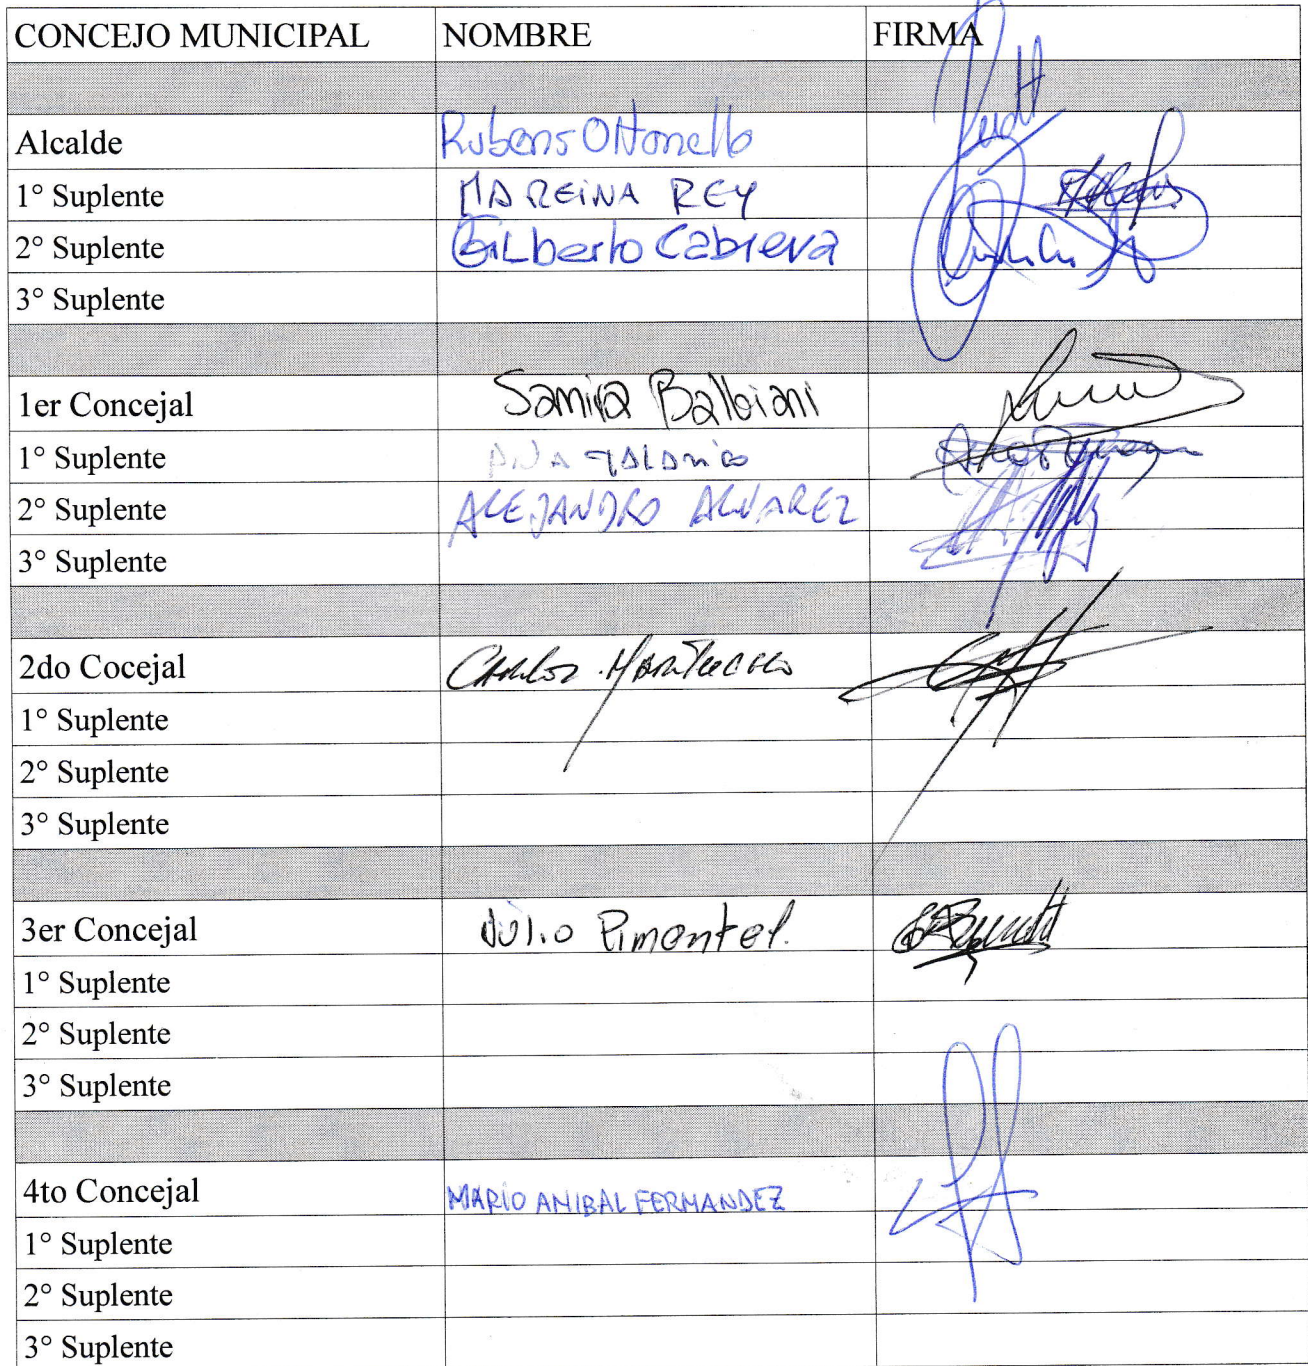 CONCEJO MUNICIPAL NOMBRE FIRMA
Alcalde Rubens Ottonello
1° Suplente MAREINA REY
2° Suplente Gilberto Cabrera
3° Suplente
1er Concejal Samira Balbiani
1° Suplente ANA
2° Suplente ALEJANDRO ALVAREZ
3° Suplente
2do Cocejal CARLOS
1° Suplente
2° Suplente
3° Suplente
3er Concejal Julio Pimentel.
1° Suplente
2° Suplente
3° Suplente
4to Concejal MARIO ANIBAL FERNANDEZ
1° Suplente
2° Suplente
3° Suplente